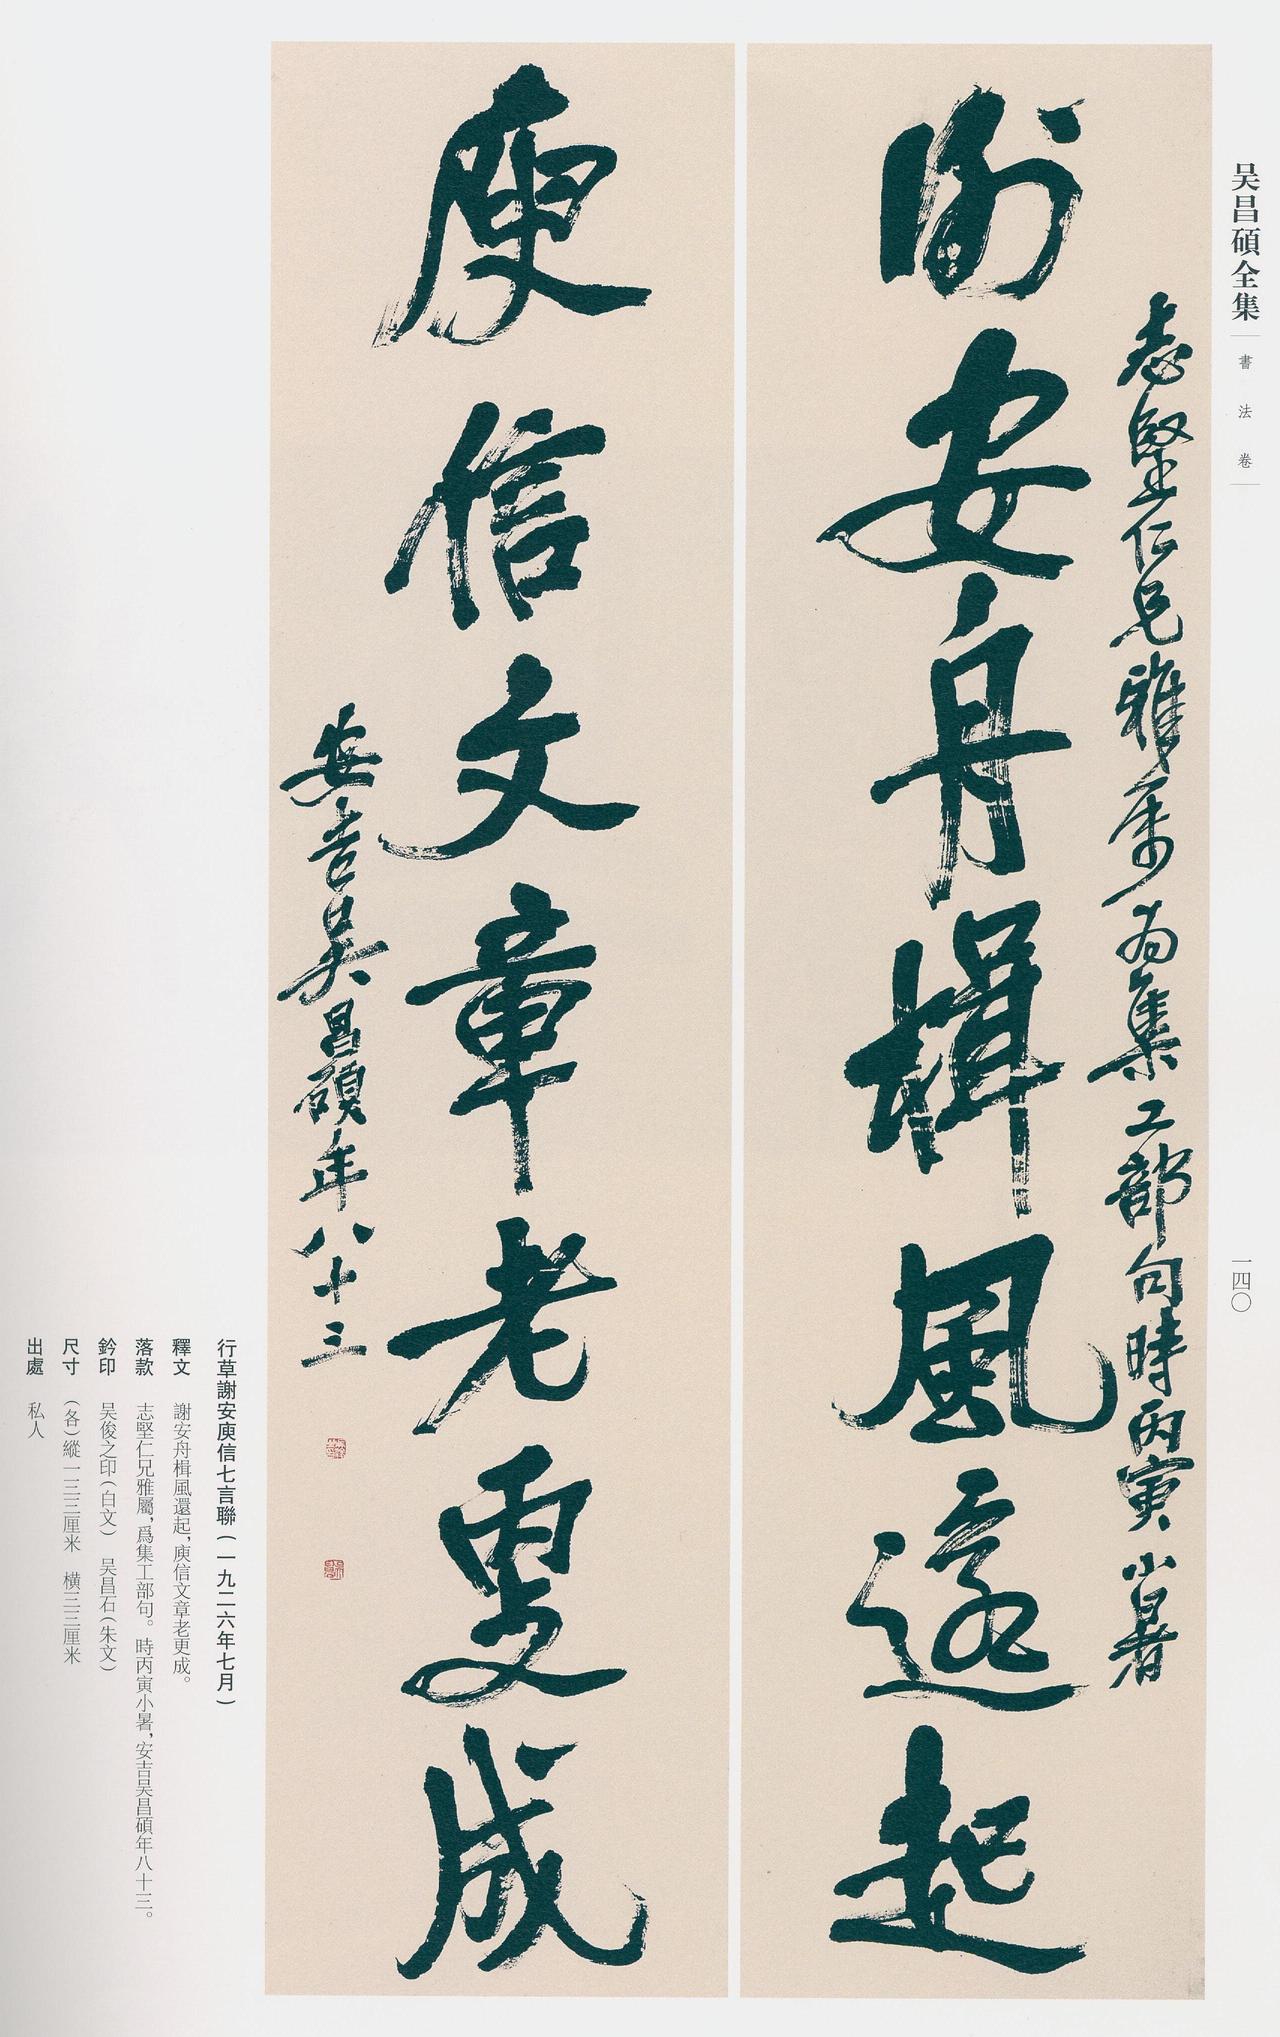 吴昌碩全集
書法卷
一四〇
志堅仁兄雅属为集工部句時丙寅小暑
謝安舟楫風還起
庾信文章老更成
安吉吴昌碩年八十三
行草謝安庾信七言聯（一九二六年七月）
釋文　謝安舟楫風還起，庾信文章老更成。
落款　志堅仁兄雅屬，爲集工部句。時丙寅小暑，安吉吴昌碩年八十三。
鈐印　吴俊之印（白文）　吴昌石（朱文）
尺寸　（各）縱一三三厘米　橫三三厘米
出處　私人